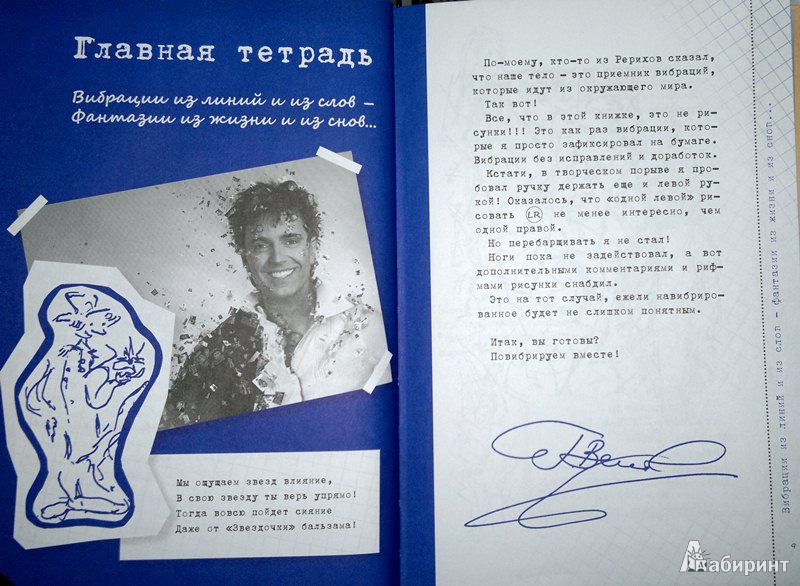 Главная тетрадь
Вибрации из линий и из слов –
Фантазии из жизни и из снов...
Мы ощущаем звезд влияние,
В свою звезду ты верь упрямо!
Тогда вовсю пойдет сияние
Даже от «Звездочки» бальзама!
По-моему, кто-то из Рерихов сказал,
что наше тело – это приемник вибраций,
которые идут из окружающего мира.
Так вот!
Все, что в этой книжке, это не ри-
сунки!!! Это как раз вибрации, кото-
рые я просто зафиксировал на бумаге.
Вибрации без исправлений и доработок.
Кстати, в творческом порыве я про-
бовал ручку держать еще и левой ру-
кой! Оказалось, что «одной левой» ри-
совать LR не менее интересно, чем
одной правой.
Но перебарщивать я не стал!
Ноги пока не задействовал, а вот
дополнительными комментариями и риф-
мами рисунки снабдил.
Это на тот случай, ежели навибриро-
ванное будет не слишком понятным.
Итак, вы готовы?
Повибрируем вместе!
Вибрации из линий и из слов – фантазии из жизни и из снов...
9
Лабиринт